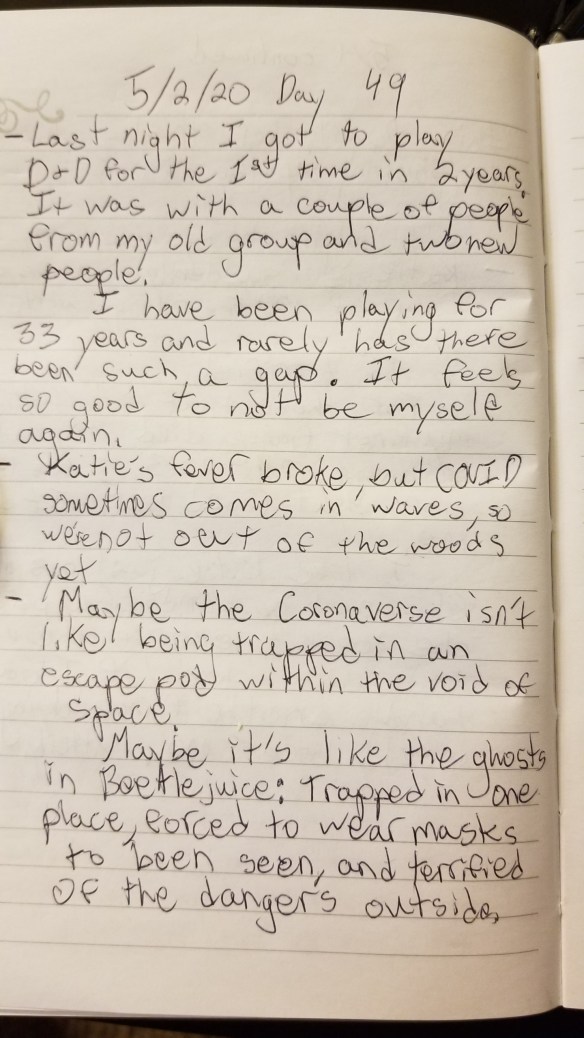 5/2/20 Day 49
- Last night I got to play
D+D for the 1st time in 2 years.
It was with a couple of people
from my old group and two new
people.
I have been playing for
33 years and rarely has there
been such a gap. It feels
so good to not be myself
again.
- Katie's fever broke, but COVID
sometimes comes in waves, so
we're not out of the woods
yet
- Maybe the Coronaverse isn't
like being trapped in an
escape pod within the void of
space.
Maybe it's like the ghosts
in Beetlejuice: Trapped in one
place, forced to wear masks
to been seen, and terrified
of the dangers outside.